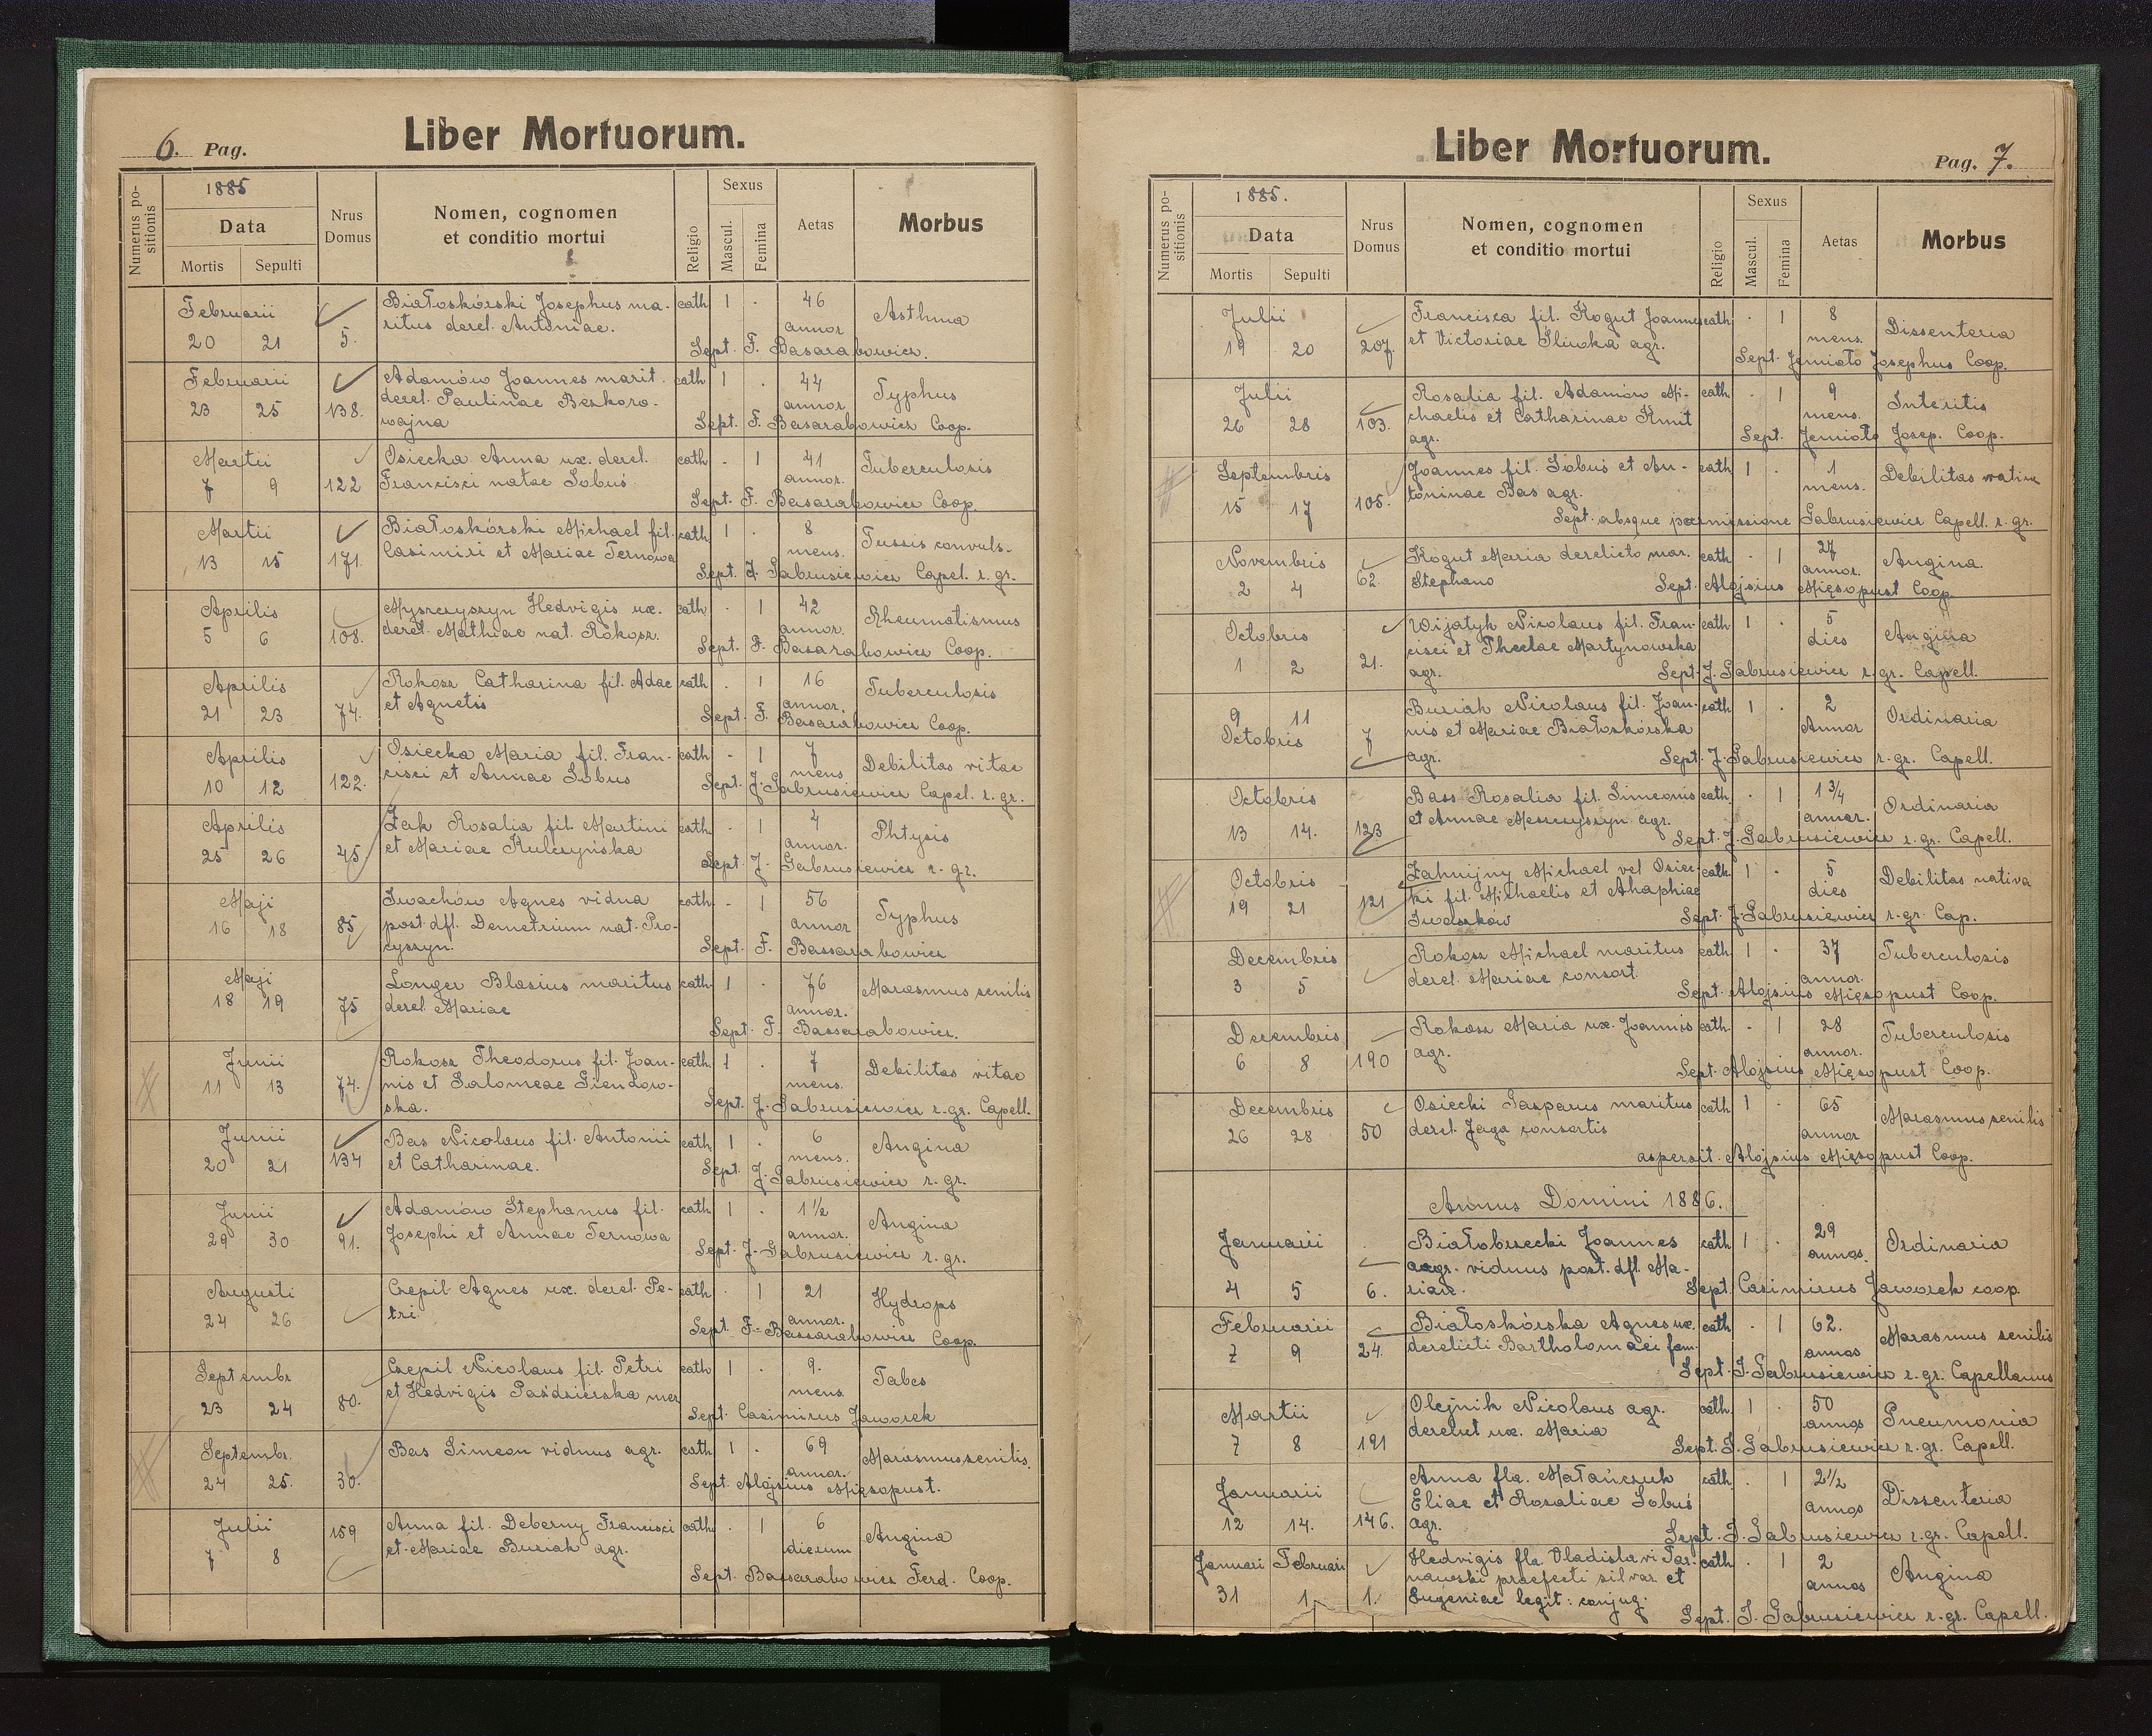 6. Pag.
Liber Mortuorum.
Numerus positionis
1885
Data
Mortis Sepulti
Nrus Domus
Nomen, cognomen et conditio mortui
Religio
Sexus
Mascul. Femina
Aetas
Morbus
Februarii 20 21 5. Białoskórski Josephus ma-
ritus derel. Antoniae. cath 1 . 46 annor Asthma
Sept. F. Basarabowicz.
Februarii 23 25 138. Adamów Joannes marit.
derel. Paulinae Bezkoro-
wajna cath 1 . 44 annor Typhus
Sept. F. Basarabowicz Coop.
Martii 7 9 122 Osiecka Anna ux. derel.
Francisci natae Sobuś cath . 1 41 annor. Tuberculosis
Sept. F. Basarabowicz Coop.
Martii 13 15 171. Białoskórski Michael fil.
Casimiri et Mariae Ternowa cath 1 . 8 mens. Tussis convuls.
Sept. J. Gabrusiewicz Capel. r. gr.
Aprilis 5 6 108. Myszczyszyn Hedvigis ux.
derel. Mathiae nat. Rokosz. cath . 1 42 annor. Rheumatismus
Sept. F. Basarabowicz Coop.
Aprilis 21 23 74. Rokosz Catharina fil. Adae
et Agnetis cath . 1 16 annor. Tuberculosis
Sept. F. Basarabowicz Coop.
Aprilis 10 12 122. Osiecka Maria fil. Fran-
cisci et Annae Sobus cath . 1 7 mens Debilitas vitae
Sept. J. Gabrusiewicz Capel. r. gr.
Aprilis 25 26 45 Żak Rosalia fil. Martini
et Mariae Kulczyńska cath . 1 4 annor. Phtysis
Sept. J. Gabrusiewicz r. gr.
Maji 16 18 85 Iwachów Agnes vidua
post. dfl. Demetrium nat. Pro-
cyszyn. cath. . 1 56 annor Typhus
Sept. F. Bassarabowicz
Maji 18 19 75 Longer Blasius maritus
derel. Mariae cath. 1 . 76 annor. Marasmus senilis
Sept. F. Bassarabowicz.
Junii 11 13 74. Rokosz Theodorus fil. Joan-
nis et Salomeae Giendow-
ska. cath. 1 . 7 mens. Debilitas vitae
Sept. J. Gabrusiewicz r. gr. Capell.
Junii 20 21 134 Bas Nicolaus fil. Antonii
et Catharinae. cath. 1 . 6 mens. Angina
Sept. J. Gabrusiewicz r. gr.
Junii 29 30 91. Adamów Stephanus fil.
Josephi et Annae Ternowa cath. 1 . 1 1/2 annor. Angina
Sept. J. Gabrusiewicz r. gr.
Augusti 24 26 Czepil Agnes ux. derel. Pe-
tri. cath. . 1 21 annor. Hydrops
Sept. F. Bassarabowicz Coop.
Septembr 23 24 80. Czepil Nicolaus fil. Petri
et Hedvigis Paździerska mer cath 1 . 9. mens. Tabes
Sept. Casimirus Jaworek
Septembr. 24 25. 30. Bas Simeon viduus agr. cath 1 . 69 annor. Marasmus senilis.
Sept. Alojsius Mięsopust.
Julii 7 8 159 Anna fil. Deberny Francisci
et Mariae Buziak agr. cath. . 1 6 dierum Angina
Sept. Bassarabowicz Ferd. Coop.
Liber Mortuorum.
Pag. 7.
Numerus positionis
1885.
Data
Mortis Sepulti
Nrus Domus
Nomen, cognomen et conditio mortui
Religio
Sexus
Mascul. Femina
Aetas
Morbus
Julii 19 20 207. Francisca fil. Kogut Joannes
et Victoriae Śliwka agr. cath . 1 8 mens. Dissenteria
Sept. Jemioło Josephus Coop.
Julii 26 28 103. Rosalia fil. Adamów Mi-
chaelis et Catharinae Kmit
agr. cath. . 1 9 mens. Interitis
Sept. Jemioło Josep. Coop.
Septembris 15 17 105. Joannes fil. Sobuś et An-
toninae Bas agr. cath 1 . 1 mens. Debilitas nativa
Sept. absque permissione Gabrusiewicz Capell. r. gr.
Novembris 2 4 62. Kogut Maria derelicto mar.
Stephano cath . 1 27 annor. Angina.
Sept. Alojsius Mięsopust Coop.
Octobris 1 2 21. Wijatyk Nicolaus fil. Fran-
cisci et Theclae Martynowska
agr. cath 1 . 5 dies Angina
Sept. J. Gabrusiewicz r. gr. Capell.
9 11 Octobris 7 Buziak Nicolaus fil. Joan-
nis et Mariae Białoskórska
agr. cath 1 . 2 Annor Ordinaria
Sept. J. Gabrusiewicz r. gr. Capell.
Octobris 13 14. 123 Bass Rosalia fil. Simeonis
et Annae Meszczyszyn agr. cath . 1 1 3/4 annor. Ordinaria
Sept. J. Gabrusiewicz r. gr. Capell.
Octobris 19 21 121 Zahnijny Michael vel Osiec-
ki fil. Michaelis et Ahaphiae
Iwaszków cath 1 . 5 dies Debilitas nativa
Sept. J. Gabrusiewicz r. gr. Cap.
Decembris 3 5 Rokosz Michael maritus
derel. Mariae consort. cath 1 . 37 annor. Tuberculosis
Sept. Alojsius Mięsopust Coop.
Decembris 6 8 190 Rokosz Maria ux. Joannis
agr. cath. . 1 28 annor. Tuberculosis
Sept. Alojsius Mięsopust Coop.
Decembris 26 28 50 Osiecki Gasparus maritus
derel. Jaga consortis cath 1 . 65 annor Marasmus senilis
aspersit. Alojsius Mięsopust Coop.
Annus Domini 1886.
Januarii 4 5 6. Białobrzecki Joannes
agr. viduus post. dfl. Ma-
riae. cath 1 . 29 annos Ordinaria
Sept. Casimirus Jaworek coop.
Februarii 7 9 24. Białoskórska Agnes ux.
derelicti Bartholomaei fam. cath . 1 62. annos Marasmus senilis
Sept. J. Gabrusiewicz r. gr. Capellanus
Martii 7 8 191 Olejnik Nicolaus agr.
derelict ux. Maria cath. 1 . 50 annos Pneumonia
Sept. J. Gabrusiewicz r. gr. Capell.
Januarii 12 14. 146. Anna fla. Matańczuk
Eliae et Rosaliae Sobuś
agr. cath . 1 2 1/2 annos Dissenteria
Sept. J. Gabrusiewicz r. gr. Capell.
Januari Februari 31 1 1. Hedvigis fla Vladislavi Tar-
nawski praefecti silvar. et
Eugeniae legit: conjug. cath . 1 2 annos Angina
Sept. J. Gabrusiewicz r. gr. Capell.